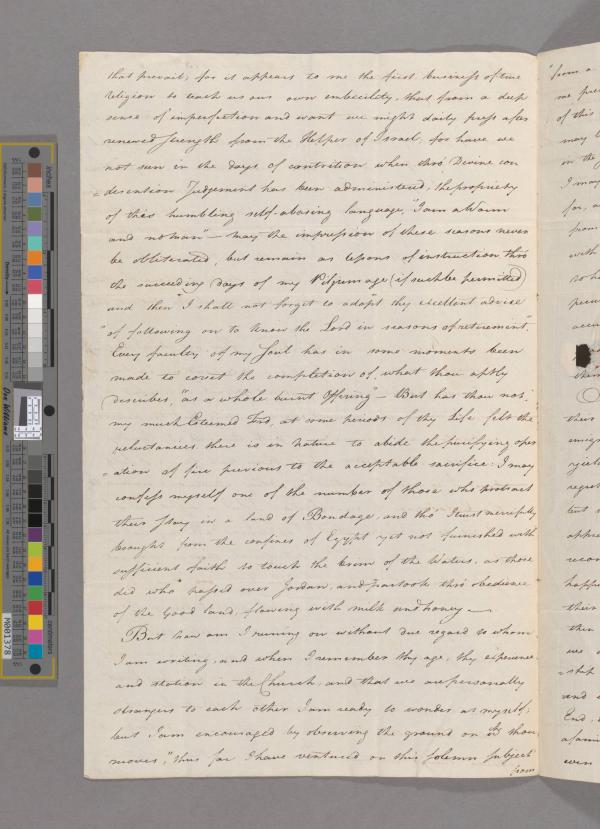 that prevail; for it appears to me the first business of true
religion to teach us our own imbecility, that from a deep
sense of imperfection and want we might daily press after
renewed strength from the Helper of Israel, for have we
not seen in the days of contrition when thro' Divine con
=descention Judgement has been administered, the propriety
of this humbling self-abasing language, "I am a Worm
and no man" - may the impression of these seasons never
be obliterated, but remain as lessons of instruction thro
the succeeding days of my Pilgrimage (if such be permitted)
and then "I shall not forget to adopt thy excellent advice
"of following on to know the Lord in seasons of retirement".
Every faculty of my Soul has in some moments been
made to covet the completion of, what thou aptly
describes, "as a whole burnt Offering - But has thou not,
my much Esteemed Frd, at some periods of thy Life felt the
reluctances there is in nature to abide the purifying oper
=ation of fire previous to the acceptable sacrifice: I may
confess myself one of the number of those who protract
their stay in a land of Bondage, and tho' I trust mercifully
brought from the confines of Egypt yet not furnished with
sufficient faith to touch the brim of the Waters, as those
did who passed over Jordan, and partook thro' obedience
of the Good land, flowing with milk and honey -
But how am I running on without due regard to whom
I am writing, and when I remember thy age, thy experience
and station in the Church, and that we are personally
strangers to each other I am ready to wonder at myself;
but I am encouraged by observing the ground on wh thou
moves, "thus far I have ventured on this solemn subject
from
"from a
me
of this
may
on the
I may
for, a
from
with
their
regret
but
happ
their
then
we
=ship
and
End,
even
inches
centimeters
Don Williams
M001378